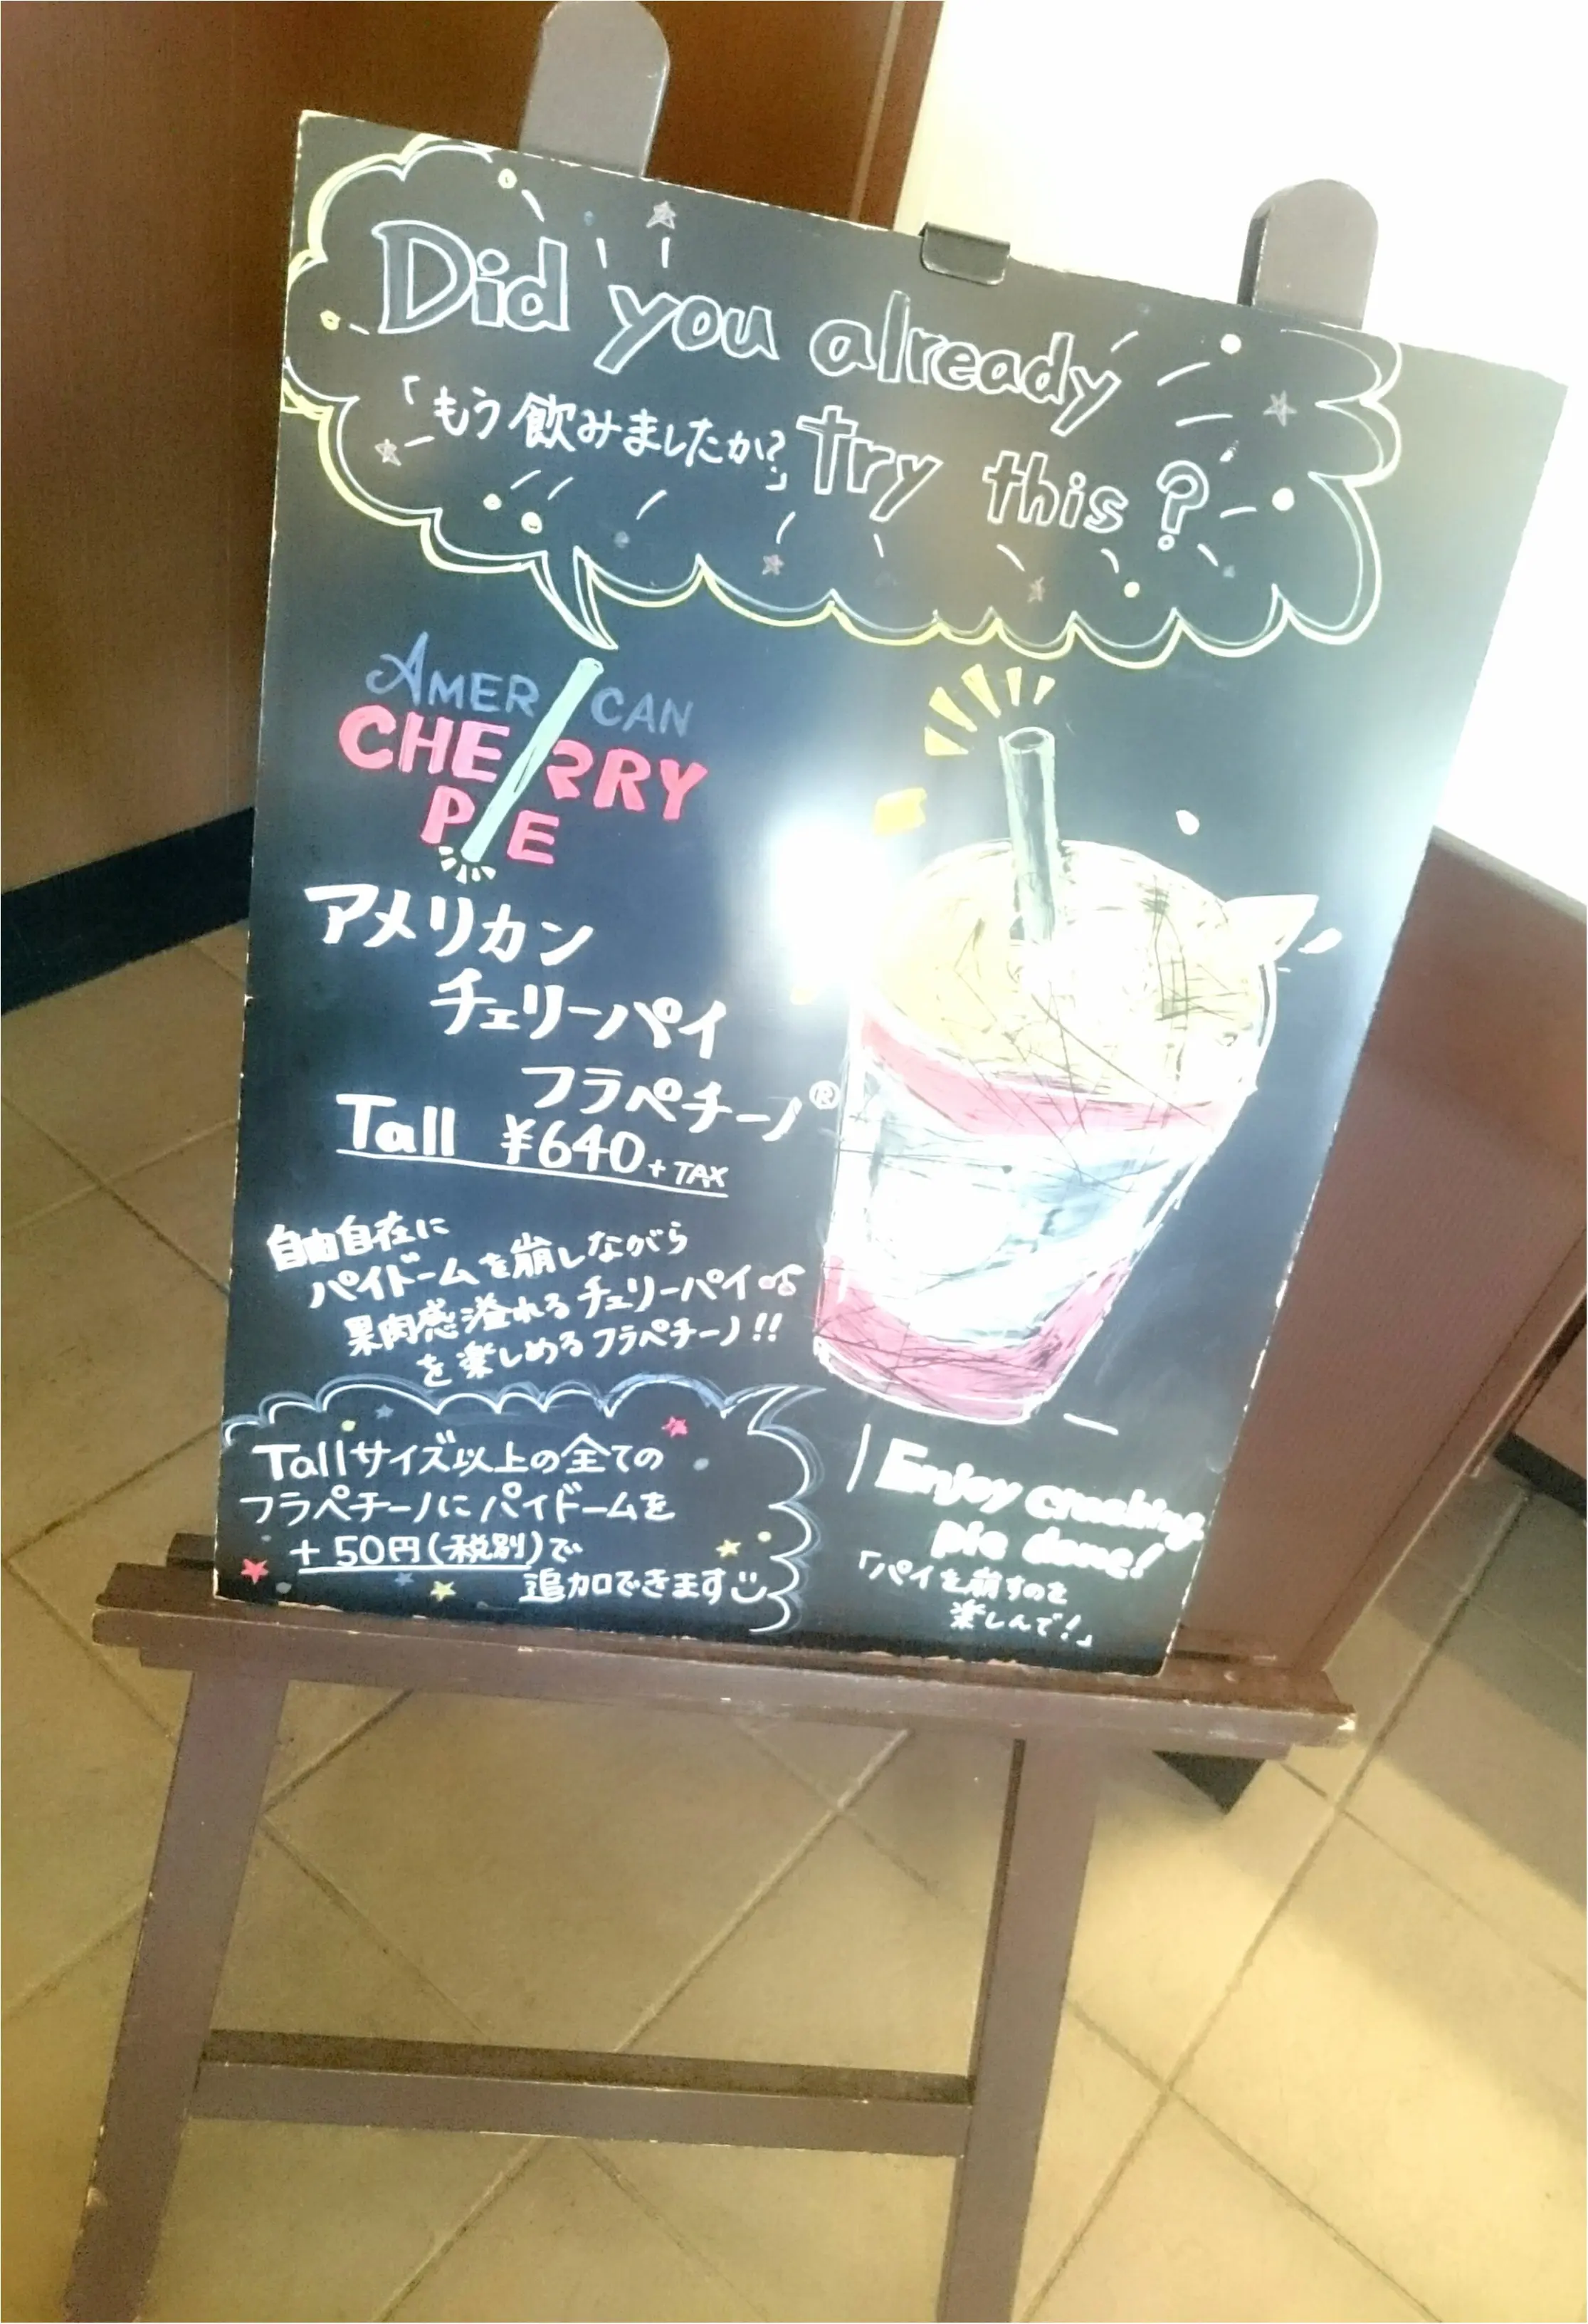 Did you already
「もう飲みましたか?」
try this?
AMERICAN
CHERRY
PIE
アメリカン
チェリーパイ
フラペチーノ®
Tall ¥640+TAX
自由自在に
パイドームを崩しながら
果肉感溢れるチェリーパイ
を楽しめるフラペチーノ!!
Tallサイズ以上の全ての
フラペチーノにパイドームを
+50円(税別)で
追加できます
Enjoy crushing
pie dome!
「パイを崩すのを
楽しんで!」